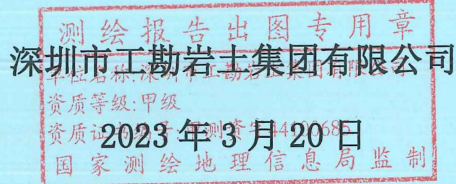 测绘报告出图专用章
深圳市工勘岩土集团有限公司
资质等级:甲级
2023 年 3 月 20 日
国家测绘地理信息局监制